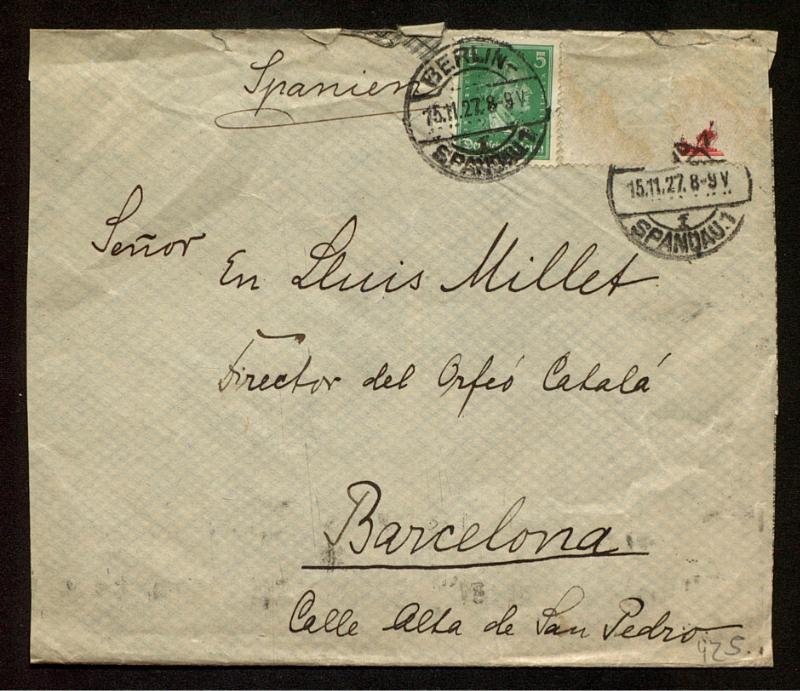 Spanien
5
BERLIN-
15.11.27. 8-9 V
SPANDAU 1
15.11.27. 8-9 V
SPANDAU 1
Señor
En Lluis Millet
Director del Orfeó Catalá
Barcelona
Calle Alta de San Pedro
425.